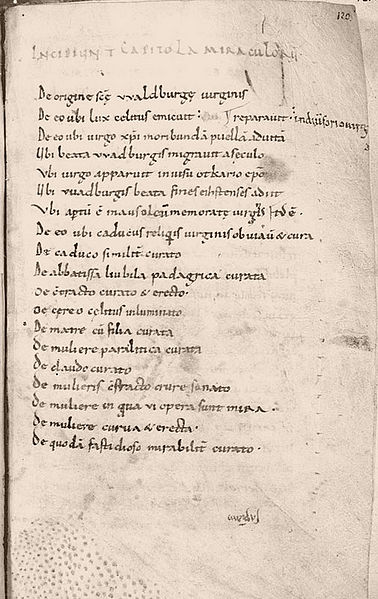 120
INCIPIUNT CAPITOLA MIRACULORŪ
De origine scę vvaldburgę virginis
De eo ubi lux celitus emicuit · reparavit ·
De eo ubi virgo xp̄i moribundā puellā adiuvā
Ubi beata vvadburgis migravit a seculo
Ubi virgo apparuit in visu otkario ep̄o
Ubi vvadburgis beata fines eihstenses adiit
Ubi aptū ē mausoleū memoratę virginis
De eo ubi caducus reliquiis virginis obviavit & cura
De caduco similit̄ curato
De abbatissa liubila padagrica curata
De c̄tracto curato & erecto ·
De ceco celitus inluminato
De matre cū filia curata
De muliere paralitica curata
De claudo curato
De mulieris c̄fracto crure sanato
De muliere in qua vi opera sunt mira ·
De muliere curva & erecta ·
De quodā fastidioso mirabilit̄ curato ·